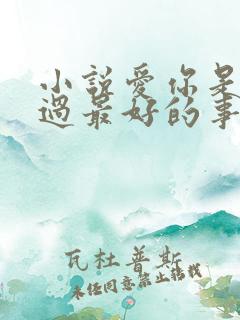 小說愛你是
過最好的事
瓦杜普斯
未經同意禁止轉載